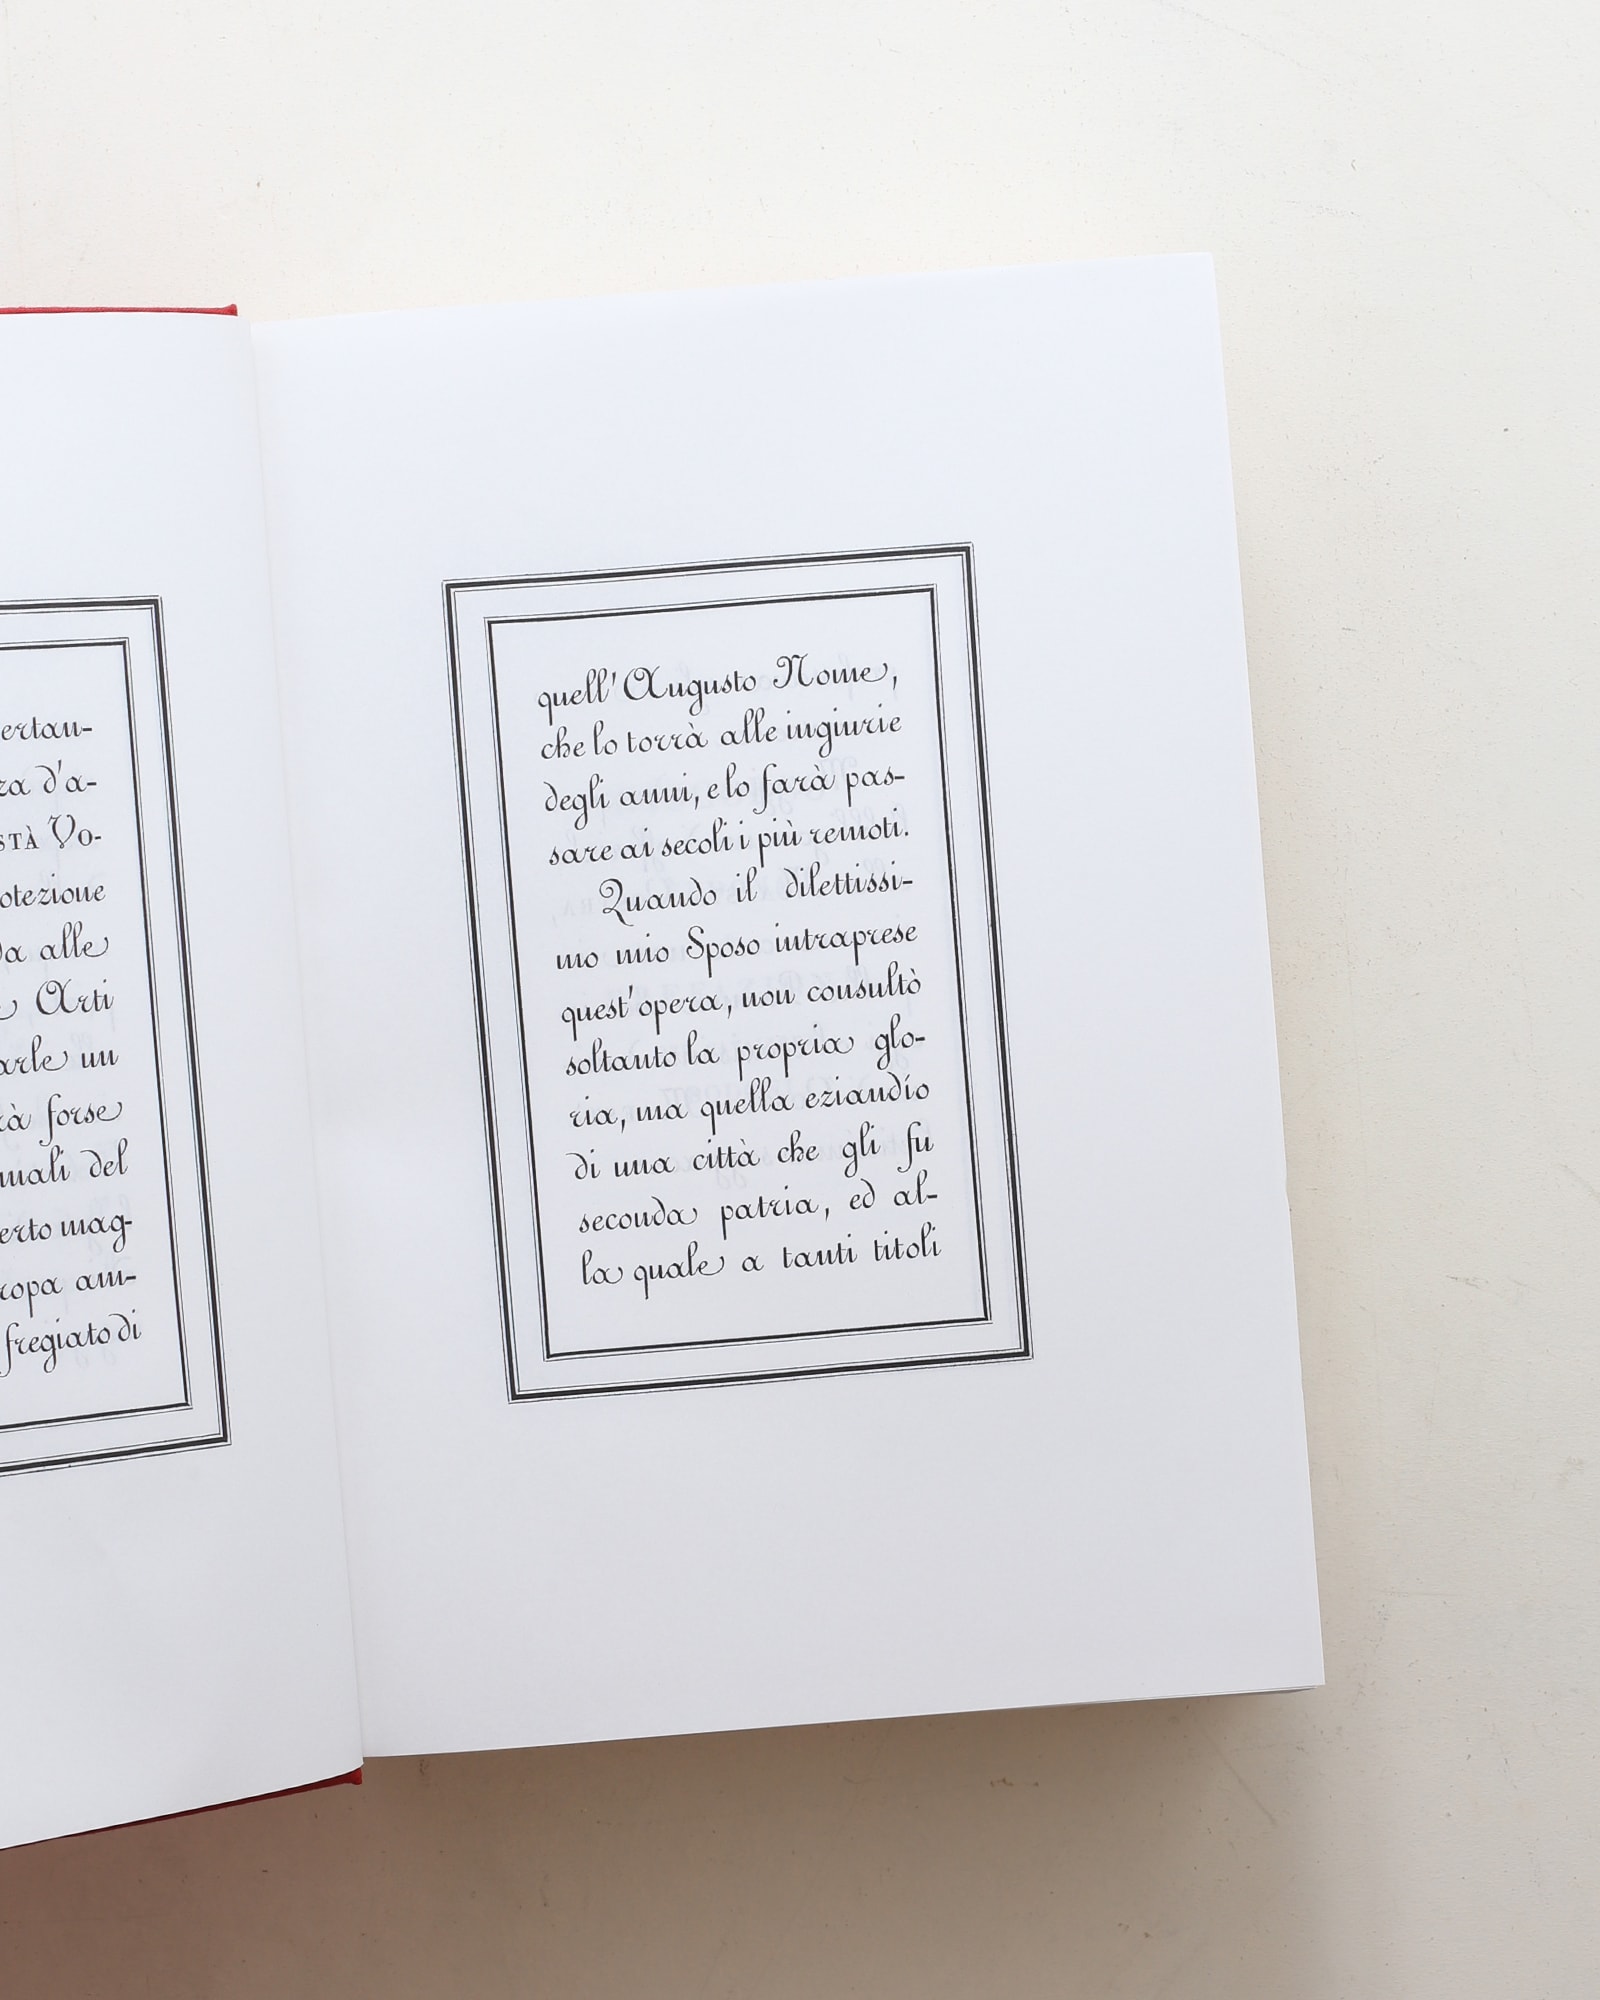 ertan-
za d'a-
STÀ VO-
otezione
da alle
Arti
arle un
rà forse
nnali del
erto mag-
ropa am-
fregiato di
quell' Augusto Nome,
che lo torrà alle ingiurie
degli anni, e lo farà pas-
sare ai secoli i più remoti.
Quando il dilettissi-
mo mio Sposo intraprese
quest' opera, non consultò
soltanto la propria glo-
ria, ma quella eziandío
di una città che gli fu
seconda patria, ed al-
la quale a tanti titoli